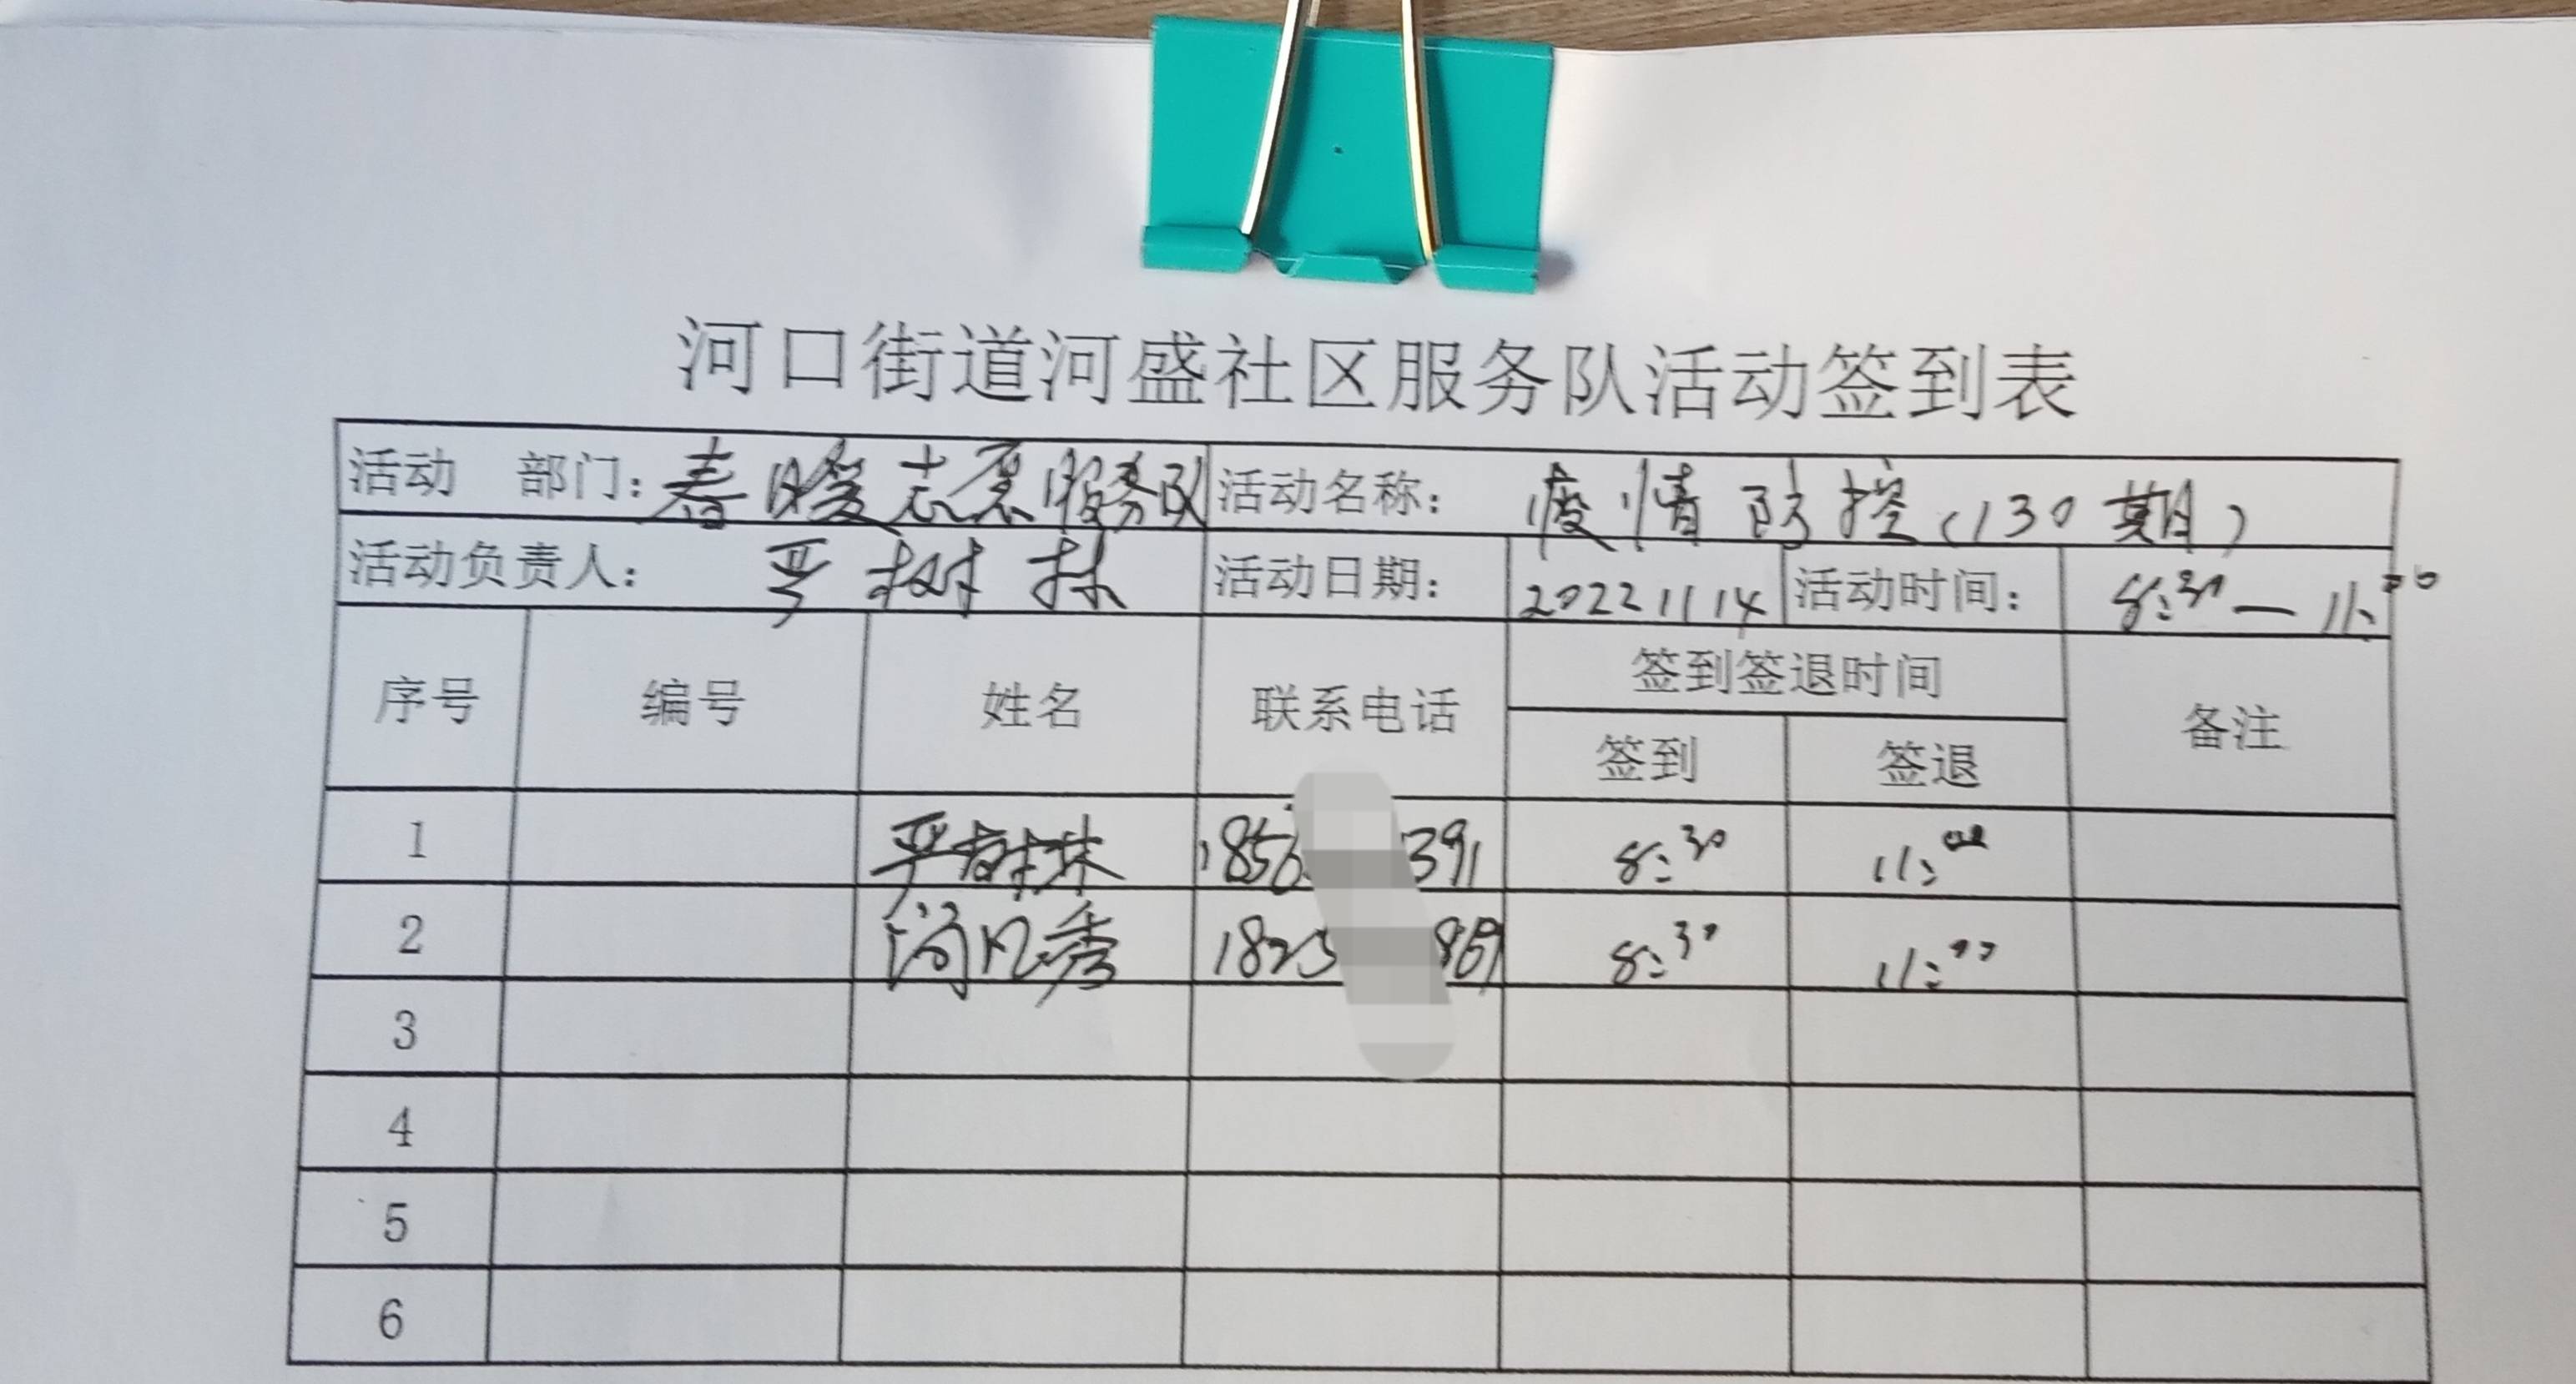 河口街道河盛社区服务队活动签到表
活动 部门：春暖志愿服务队 活动名称： 疫情防控（130期）
活动负责人： 严树林 活动日期： 20221114 活动时间： 8:30—11:00
序号 编号 姓名 联系电话 签到签退时间 备注
签到 签退
1 严树林 185 391 8:30 11:00
2 秀 182 8:30 11:00
3
4
5
6